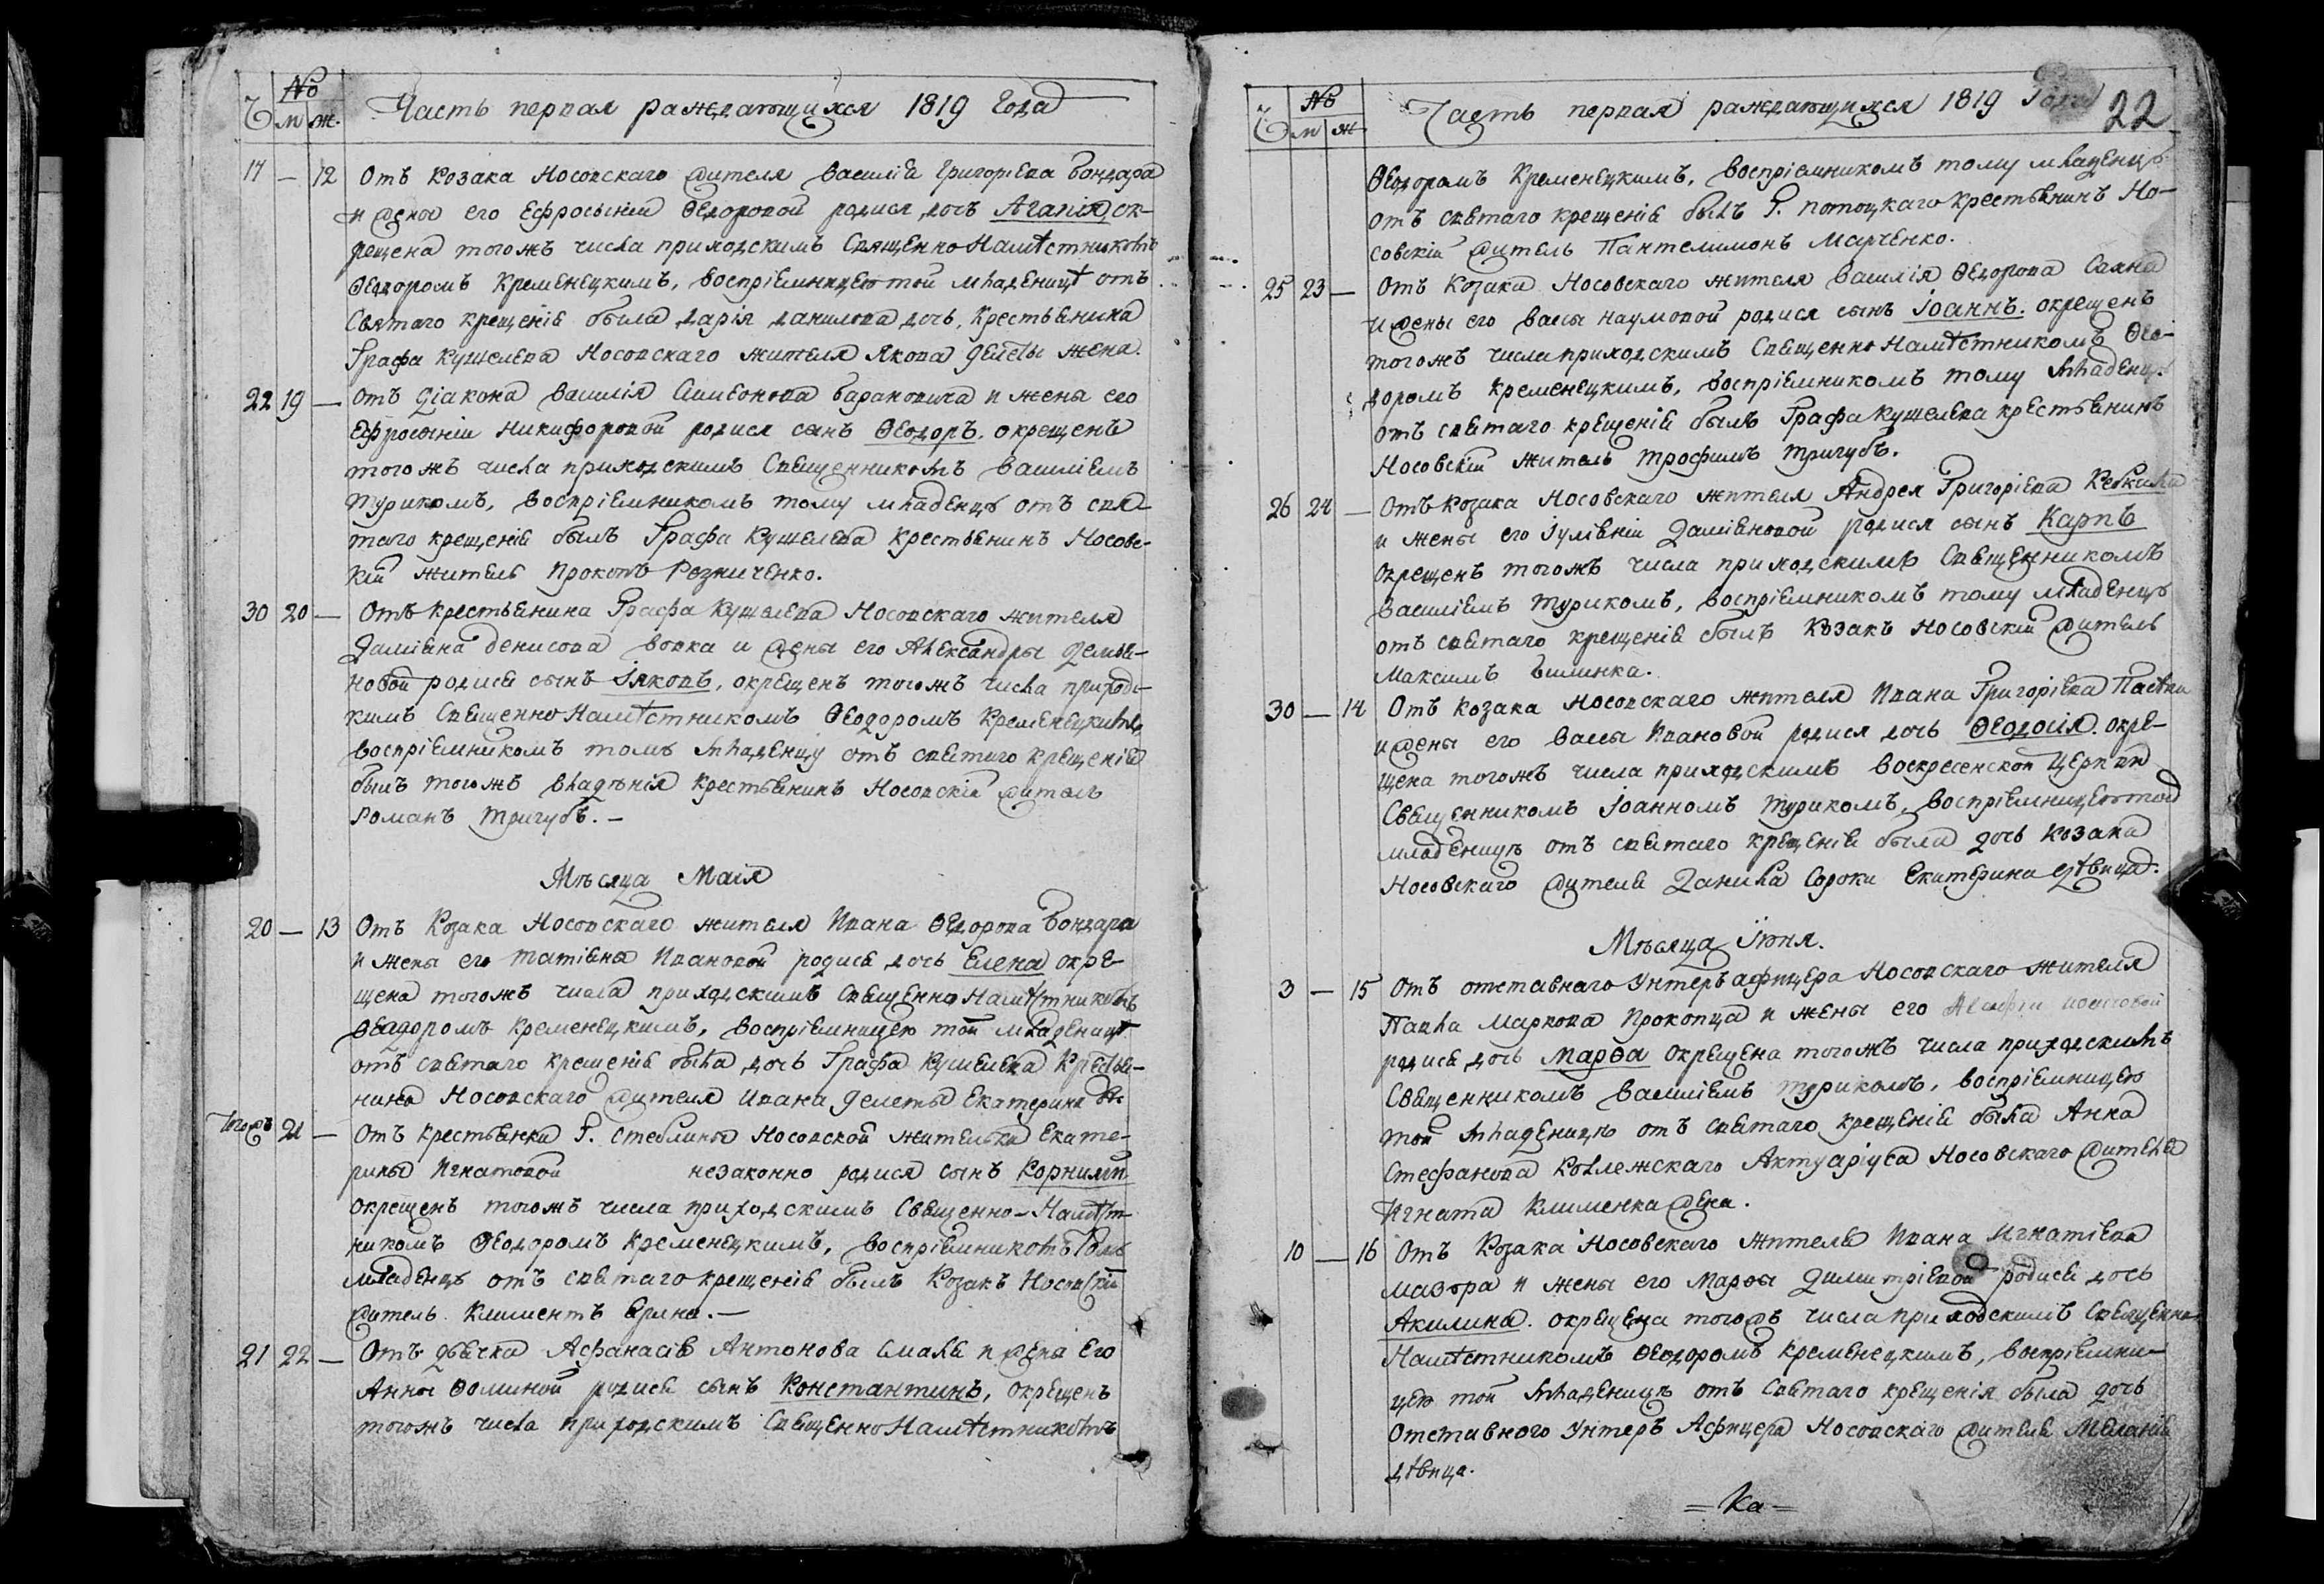 Ч № м ж. Часть первая раждающихся 1819 Года
17 — 12 Отъ Козака Носовскаго жителя Василія Григорıева Бондара
и жены его Ефросынıи Ѳедоровой родися дочь Агапія ок-
рещена тогожъ числа приходскимъ Священно Намѣстникомъ
Ѳеодоромъ Кременецкимъ, воспріемницею той младеницѣ отъ
Святаго крещенія была Дарія Данилова дочь, Крестьянина
Графа Кушелева Носовскаго жителя Якова жена.
22 19 — Отъ Діакона Василія Симеонова Барановича и жены его
Ефросиніи Никифоровой родися сынъ Ѳеодоръ. окрещенъ
тогожъ числа приходскимъ Священникомъ Василіемъ
Турикомъ, воспріемникомъ тому младенцу отъ свя-
таго крещенія былъ Графа Кушелева крестьянинъ Носовс-
кій житель Прокопъ Резниченко.
30 20 — Отъ крестьянина Графа Кушелева Носовскаго жителя
Даміяна Денисова Вовка и жены его Александры Демья-
новой родися сынъ Іяковъ, окрещенъ тогожъ числа приходс-
кимъ Священно Намѣстникомъ Ѳеодоромъ Кременецкимъ,
воспріемникомъ тому младенцу отъ святаго крещенія
былъ тогожъ владѣнія крестьянинъ Носовскій житель
Романъ Тригубъ. —
Мѣсяца Маія
20 — 13 Отъ Козака Носовскаго жителя Ивана Ѳедорова Бондара
и жены его Татіяны Ивановой родися дочь Елена окре-
щена тогожъ числа приходскимъ Священно Намѣстникомъ
Ѳеодоромъ Кременецкимъ, воспріемницею той младеницѣ
отъ святаго крещенія была дочь Графа Кушелева Крестья-
нина Носовскаго жителя Ивана Екатерина
Тогожъ 21 — Отъ крестьянки Г. Стеблина Носовской жительки Екате-
рины Игнатовой незаконно родися сынъ Корнилій
окрещенъ тогожъ числа приходскимъ Священно-Намѣст-
никомъ Ѳеодоромъ Кременецкимъ, воспріемникомъ тому
младенцу отъ святаго крещенія былъ Козакъ Носовскій
житель Климентъ —
21 22 — Отъ дьячка Аѳанасія Антонова и жены его
Анны Ѳоминой родися сынъ Константинъ, окрещенъ
тогожъ числа приходскимъ Священно Намѣстникомъ
Ч № м ж Часть первая раждающихся 1819 Года 22
Ѳеодоромъ Кременецкимъ, воспріемникомъ тому младенцу
отъ святаго крещенія былъ Г. Потоцкаго крестьянинъ Но-
совскій житель Пантелимонъ Марченко.
25 23 — Отъ Козака Носовскаго жителя Василія Ѳедорова
и жены его Вассы Наумовой родися сынъ Іоаннъ. окрещенъ
тогожъ числа приходскимъ Священно Намѣстникомъ Ѳео-
доромъ Кременецкимъ, воспріемникомъ тому младенцу
отъ святаго крещенія былъ Графа Кушелева крестьянинъ
Носовскій житель Трофимъ Тригубъ.
26 24 — Отъ Козака Носовскаго жителя Андрея Григоріева
и жены его Іуліяніи Даміяновой родися сынъ Карпъ
окрещенъ тогожъ числа приходскимъ Священникомъ
Василіемъ Турикомъ, воспріемникомъ тому младенцу
отъ святаго крещенія былъ Козакъ Носовскій житель
Максимъ
30 — 14 Отъ Козака Носовскаго жителя Ивана Григоріева
и жены его Вассы Ивановой родися дочь Ѳеодосія. окре-
щена тогожъ числа приходскимъ Воскресенской Церкви
Священникомъ Іоанномъ Турикомъ, воспріемницею той
младеницѣ отъ святаго крещенія была дочь Козака
Носовскаго жителя Данила Сороки Екатерина дѣвица.
Мѣсяца Іюня.
3 — 15 Отъ отставнаго Унтеръ афицера Носовскаго жителя
Павла Маркова Прокопца и жены его
родися дочь Марѳа окрещена тогожъ числа приходскимъ
Священникомъ Василіемъ Турикомъ, воспріемницею
той младеницѣ отъ святаго крещенія была Анна
Стефанова Коллежскаго Актуаріуса Носовскаго жителя
Игната Клименка жена.
10 — 16 Отъ Козака Носовскаго жителя Ивана Игнатіева
Мазора и жены его Марѳы Димитріевой родися дочь
Акилина. окрещена тогожъ числа приходскимъ Священно
Намѣстникомъ Ѳеодоромъ Кременецкимъ, воспріемни-
цею той младеницѣ отъ святаго крещенія была дочь
Отставного Унтеръ Афицера Носовскаго жителя Меланія
дѣвица.
= Ка =